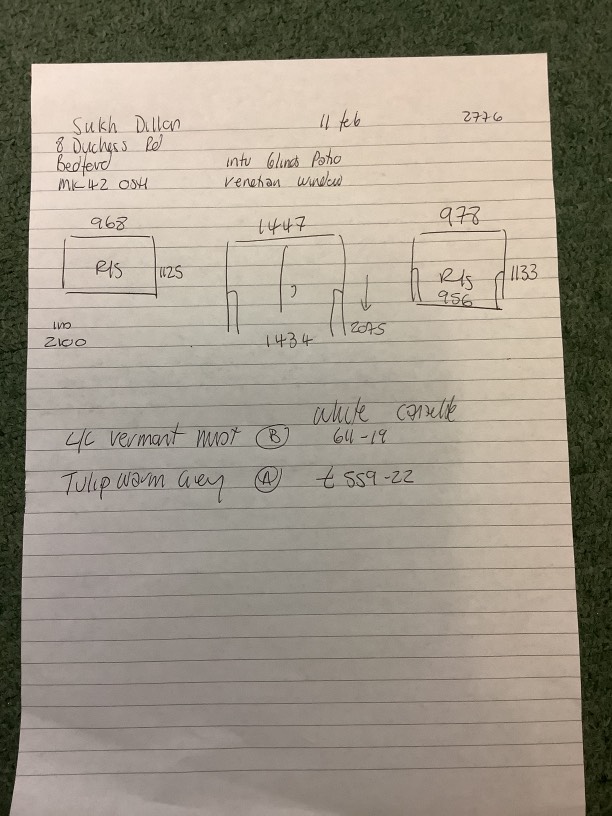 Sukh Dillon 11 feb 2776
8 Duchess Rd
Bedford intu blinds Patio
MK42 0SH venetian window
968 1447 978
R/s 1125 R/s 1133
956
2100 1434 2075
white cassette
L/C vermant (B) 611-19
Tulip warm Grey (A) £559-22